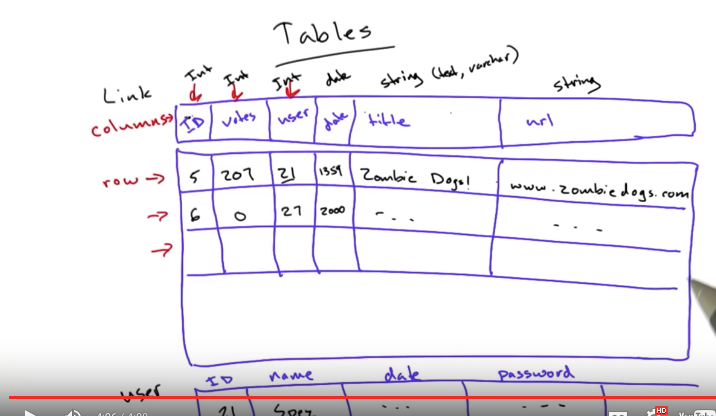 Tables
Link Int Int Int date string (text, varchar) string
columns ID votes user date title url
row 5 207 21 1359 Zombie Dogs! www.zombiedogs.com
6 0 27 2000 - . . - - -
ID name date password
user 21 Spez . . . - - -
4:06 / 4:08 HD YouTube